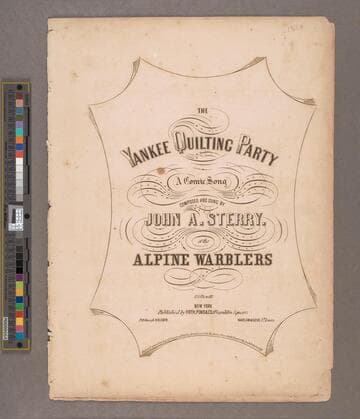 THE
YANKEE QUILTING PARTY
A Comic Song
COMPOSED AND SUNG BY
JOHN A. STERRY,
of the
ALPINE WARBLERS
NEW YORK
Published by FIRTH, POND & CO. 1 Franklin Square